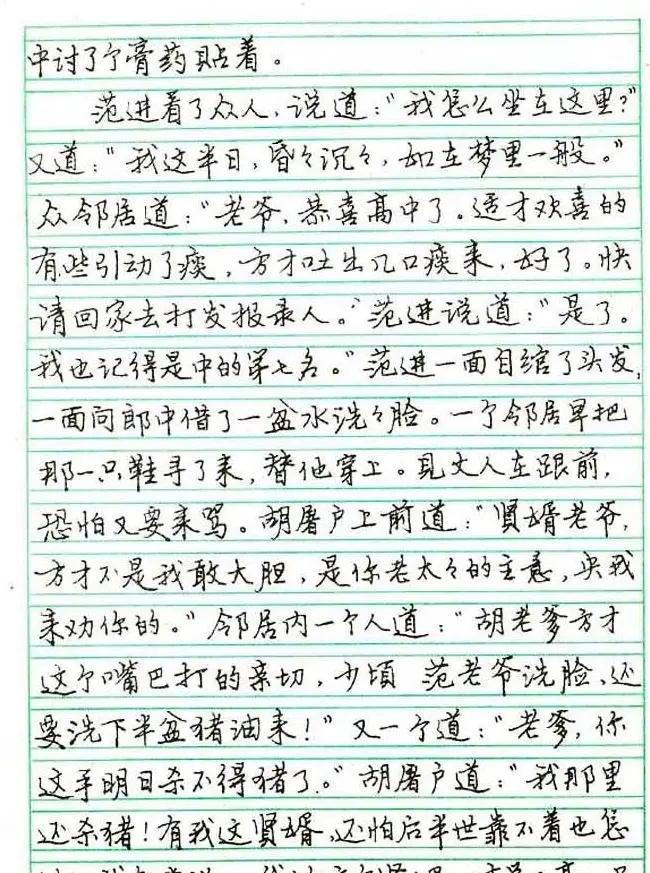 中讨了个膏药贴着。
范进看了众人，说道：“我怎么坐在这里？”
又道：“我这半日，昏々沉々，如在梦里一般。”
众邻居道：“老爷，恭喜高中了。适才欢喜的
有些引动了痰，方才吐出几口痰来，好了。快
请回家去打发报录人。”范进说道：“是了。
我也记得是中的第七名。”范进一面自绾了头发，
一面问郎中借了一盆水洗々脸。一个邻居早把
那一只鞋寻了来，替他穿上。见丈人在跟前，
恐怕又要来骂。胡屠户上前道：“贤婿老爷，
方才不是我敢大胆，是你老太々的主意，央我
来劝你的。”邻居内一个人道：“胡老爹方才
这个嘴巴打的亲切，少顷 范老爷洗脸、还
要洗下半盆猪油来！”又一个道：“老爹，你
这手明日杀不得猪了。”胡屠户道：“我那里
还杀猪！有我这贤婿，还怕后半世靠不着也怎